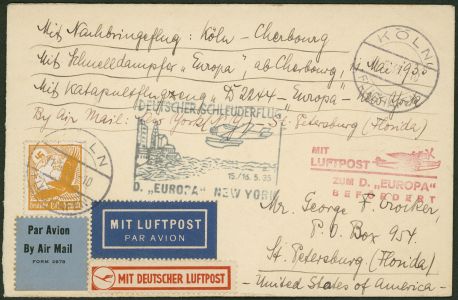 Mit Nachbringeflug: Köln - Cherbourg
Mit Schnelldampfer "Europa", ab Cherbourg, Mai 1935
Mit Katapultflugzeug "D 2244 - Europa - New York
By Air Mail: New York - St. Petersburg (Florida)
KÖLN
DEUTSCHER SCHLEUDERFLUG
15./16.5.35
D. „EUROPA" NEW YORK
MIT
LUFTPOST
ZUM D. „EUROPA"
BEFÖRDERT
KÖLN
Par Avion
By Air Mail
FORM 2978
MIT LUFTPOST
PAR AVION
MIT DEUTSCHER LUFTPOST
Mr. George F.
P.O. Box 954.
St. Petersburg (Florida)
- United States of America -